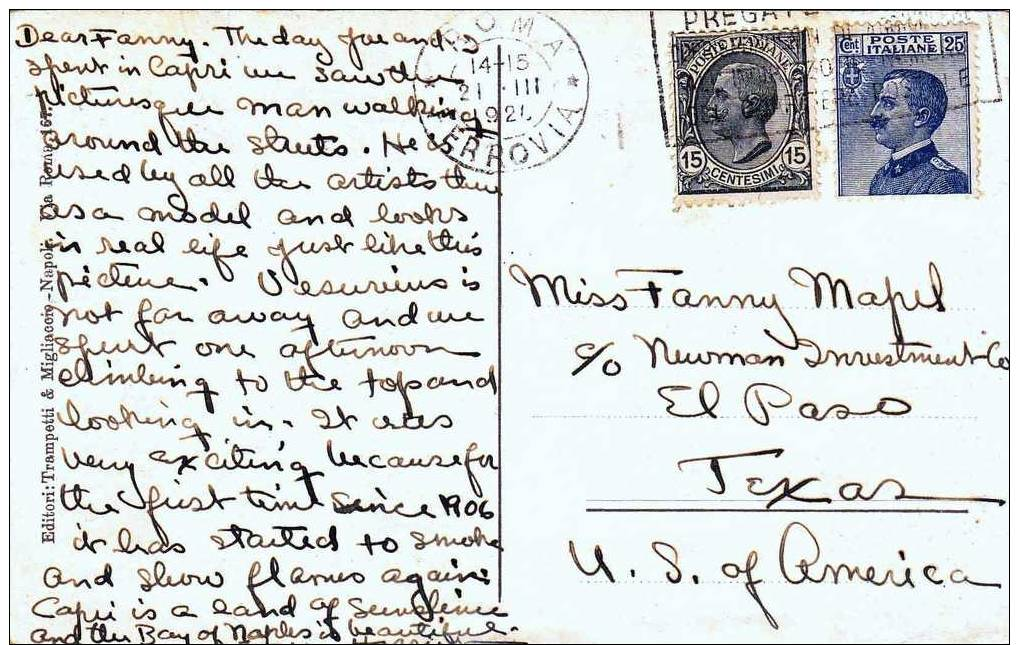 Dear Fanny. The day Joe and I
spent in Capri we saw this
picturesque man walking
around the streets. He is
used by all the artists there
as a model and looks
in real life just like this
picture. Vesuvius is
not far away and we
spent one afternoon
climbing to the top and
looking in. It was
very exciting because for
the first time since 1906
it has started to smoke
and show flames again.
Capri is a land of sunshine
and the Bay of Naples is beautiful.
Editori: Trampetti & Migliaccio - Napoli. Via Roma
ROMA
14-15
21 III
FERROVIA
PREGATE
POSTE ITALIANE
15 15
CENTESIMI
Cent POSTE 25
ITALIANE
Miss Fanny Mapel
c/o Newman Investment Co
El Paso
Texas
U. S. of America